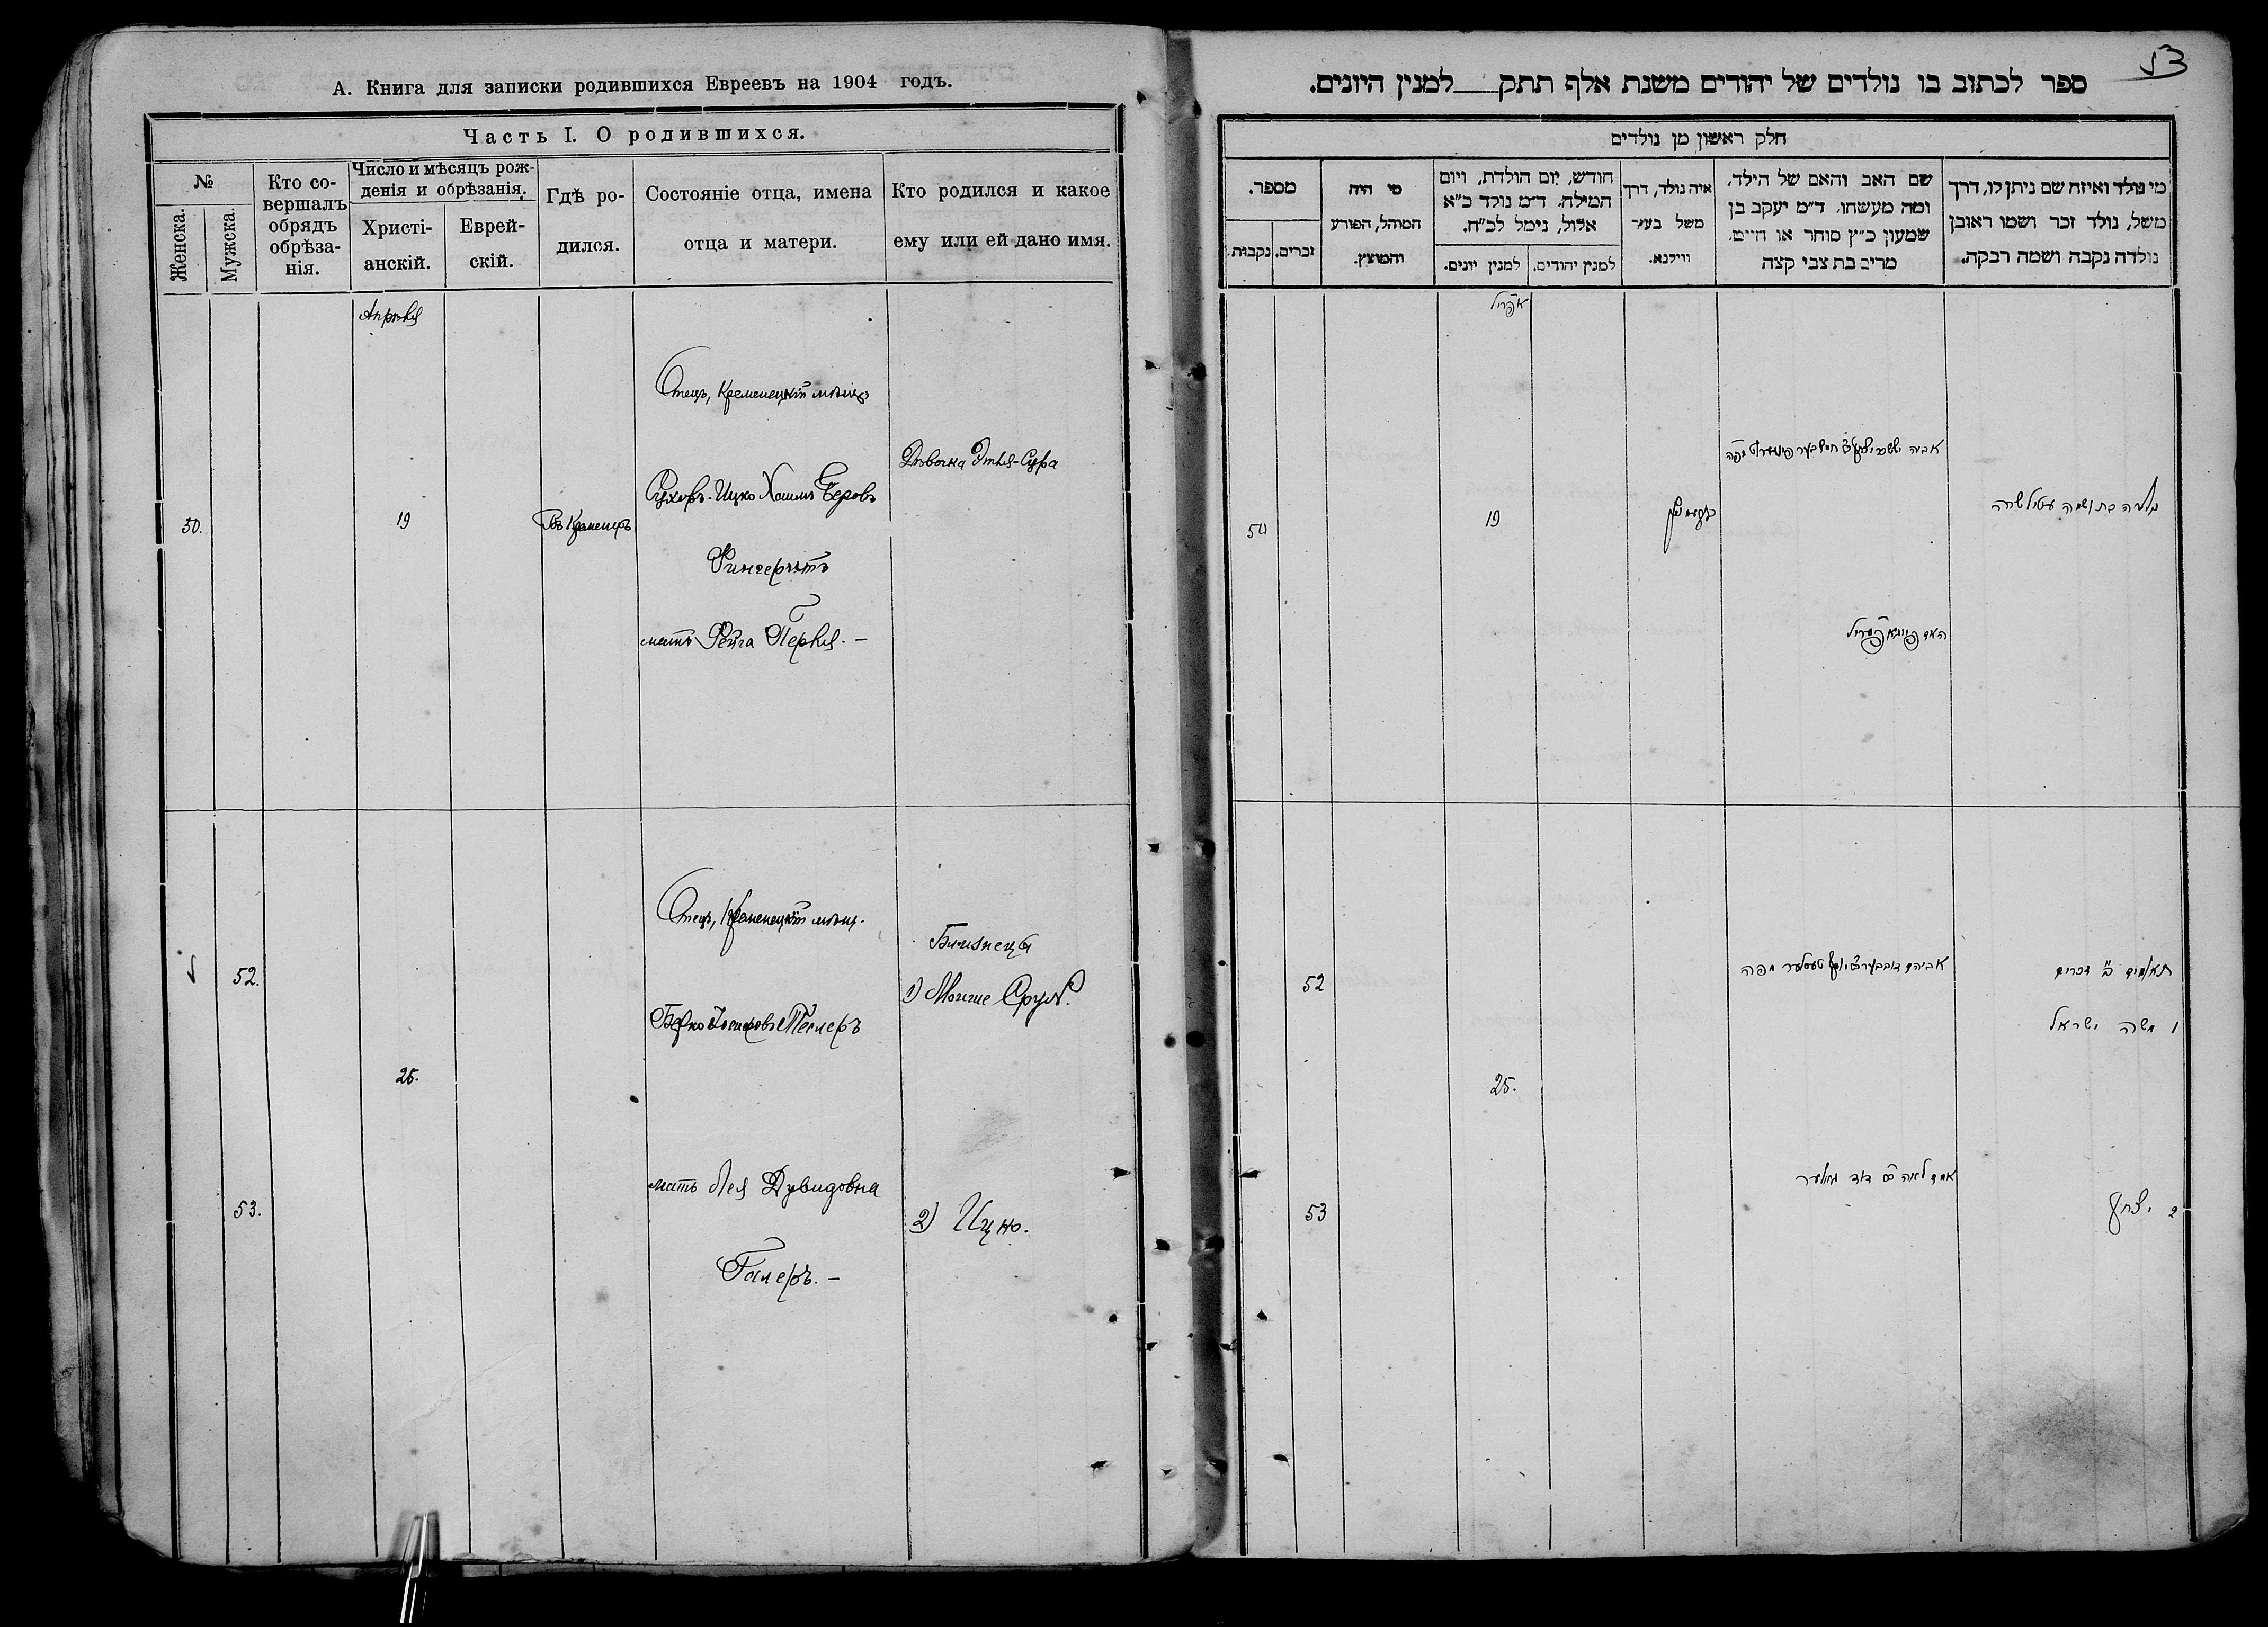 А. Книга для записки родившихся Евреевъ на 1904 годъ.
Часть I. О родившихся.
№
Женска.
Мужска.
Кто со-
вершалъ
обрядъ
обрѣза-
нія.
Число и мѣсяцъ рож-
денія и обрѣзанія.
Христі-
анскій.
Еврей-
скій.
Гдѣ ро-
дился.
Состояніе отца, имена
отца и матери.
Кто родился и какое
ему или ей дано имя.
Апрѣля
Отецъ, Кременецкій мѣщ
Ицко Хаимъ Беровъ
Фингерутъ
мать Фейга Перля. —
Дѣвочка Этля-Сура
50.
19
Въ Кременцѣ
Отецъ, Кременецкій мѣщ.
Берко Іосифовъ Теслеръ
мать Лея Дувидовна
Галеръ. —
52.
25.
53.
Близнецы
1) Мойше Сруль.
2) Ицко.
53
ספר לכתוב בו נולדים של יהודים משנת אלף תתק למנין היונים.
חלק ראשון מן נולדים
מי נולד ואיזה שם ניתן לו, דרך
משל, נולד זכר ושמו ראובן
נולדה נקבה ושמה רבקה.
שם האב והאם של הילד,
ומה מעשהו. ד״מ יעקב בן
שמעון כ״ץ סוחר או חייט.
מרים בת צבי קצה
איה נולד, דרך
משל בעיר
ווילנא.
חודש, יום הולדת, ויום
המילה. ד״מ נולד כ״א
אלול, נימל לכ״ח.
למנין יהודים.
למנין יונים.
מי היה
המוהל, הפורע
והמוצץ.
מספר.
זכרים.
נקבות.
אפריל
נולדה בת ושמה עטיל שרה
האם פייגא פעריל
19
50
תאומים ב׳ זכרים
1 משה ישראל
2 יצחק
אביהם דובבער ב״ר יוסף טעסלער מפה
אמם לאה בת דוד גאלער
25.
52
53